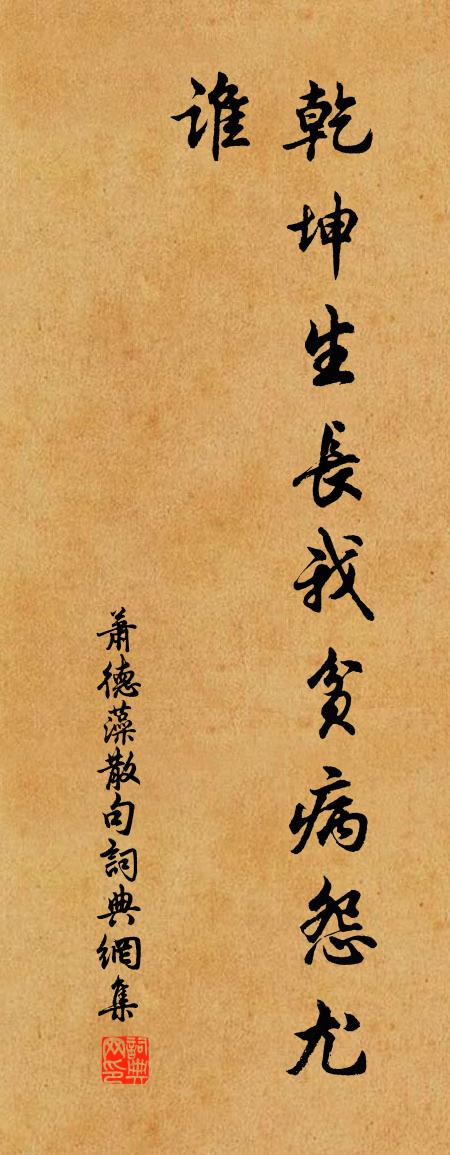 乾坤生長我貧病怨尤
誰
蕭德藻散句詞典網集
詞典网印